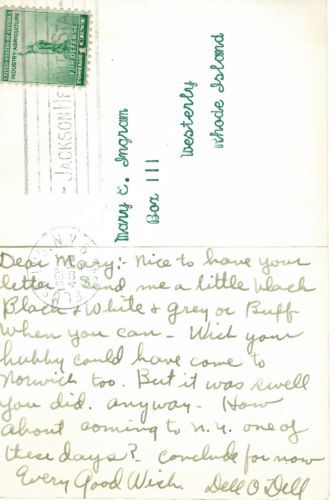 UNITED STATES OF AMERICA
INDUSTRY AGRICULTURE
FOR DEFENSE
JACKSON HE
Mary E. Ingram
Box 111
Westerly
Rhode Island
Dear Mary:- Nice to have your
letter. Send me a little black
Black & White & grey or Buff
when you can - Wish your
hubby could have come to
Norwich too. But it was swell
you did. anyway - How
about coming to N.Y. one of
these days? Conclude for now
Every Good Wish. Dell O'Dell